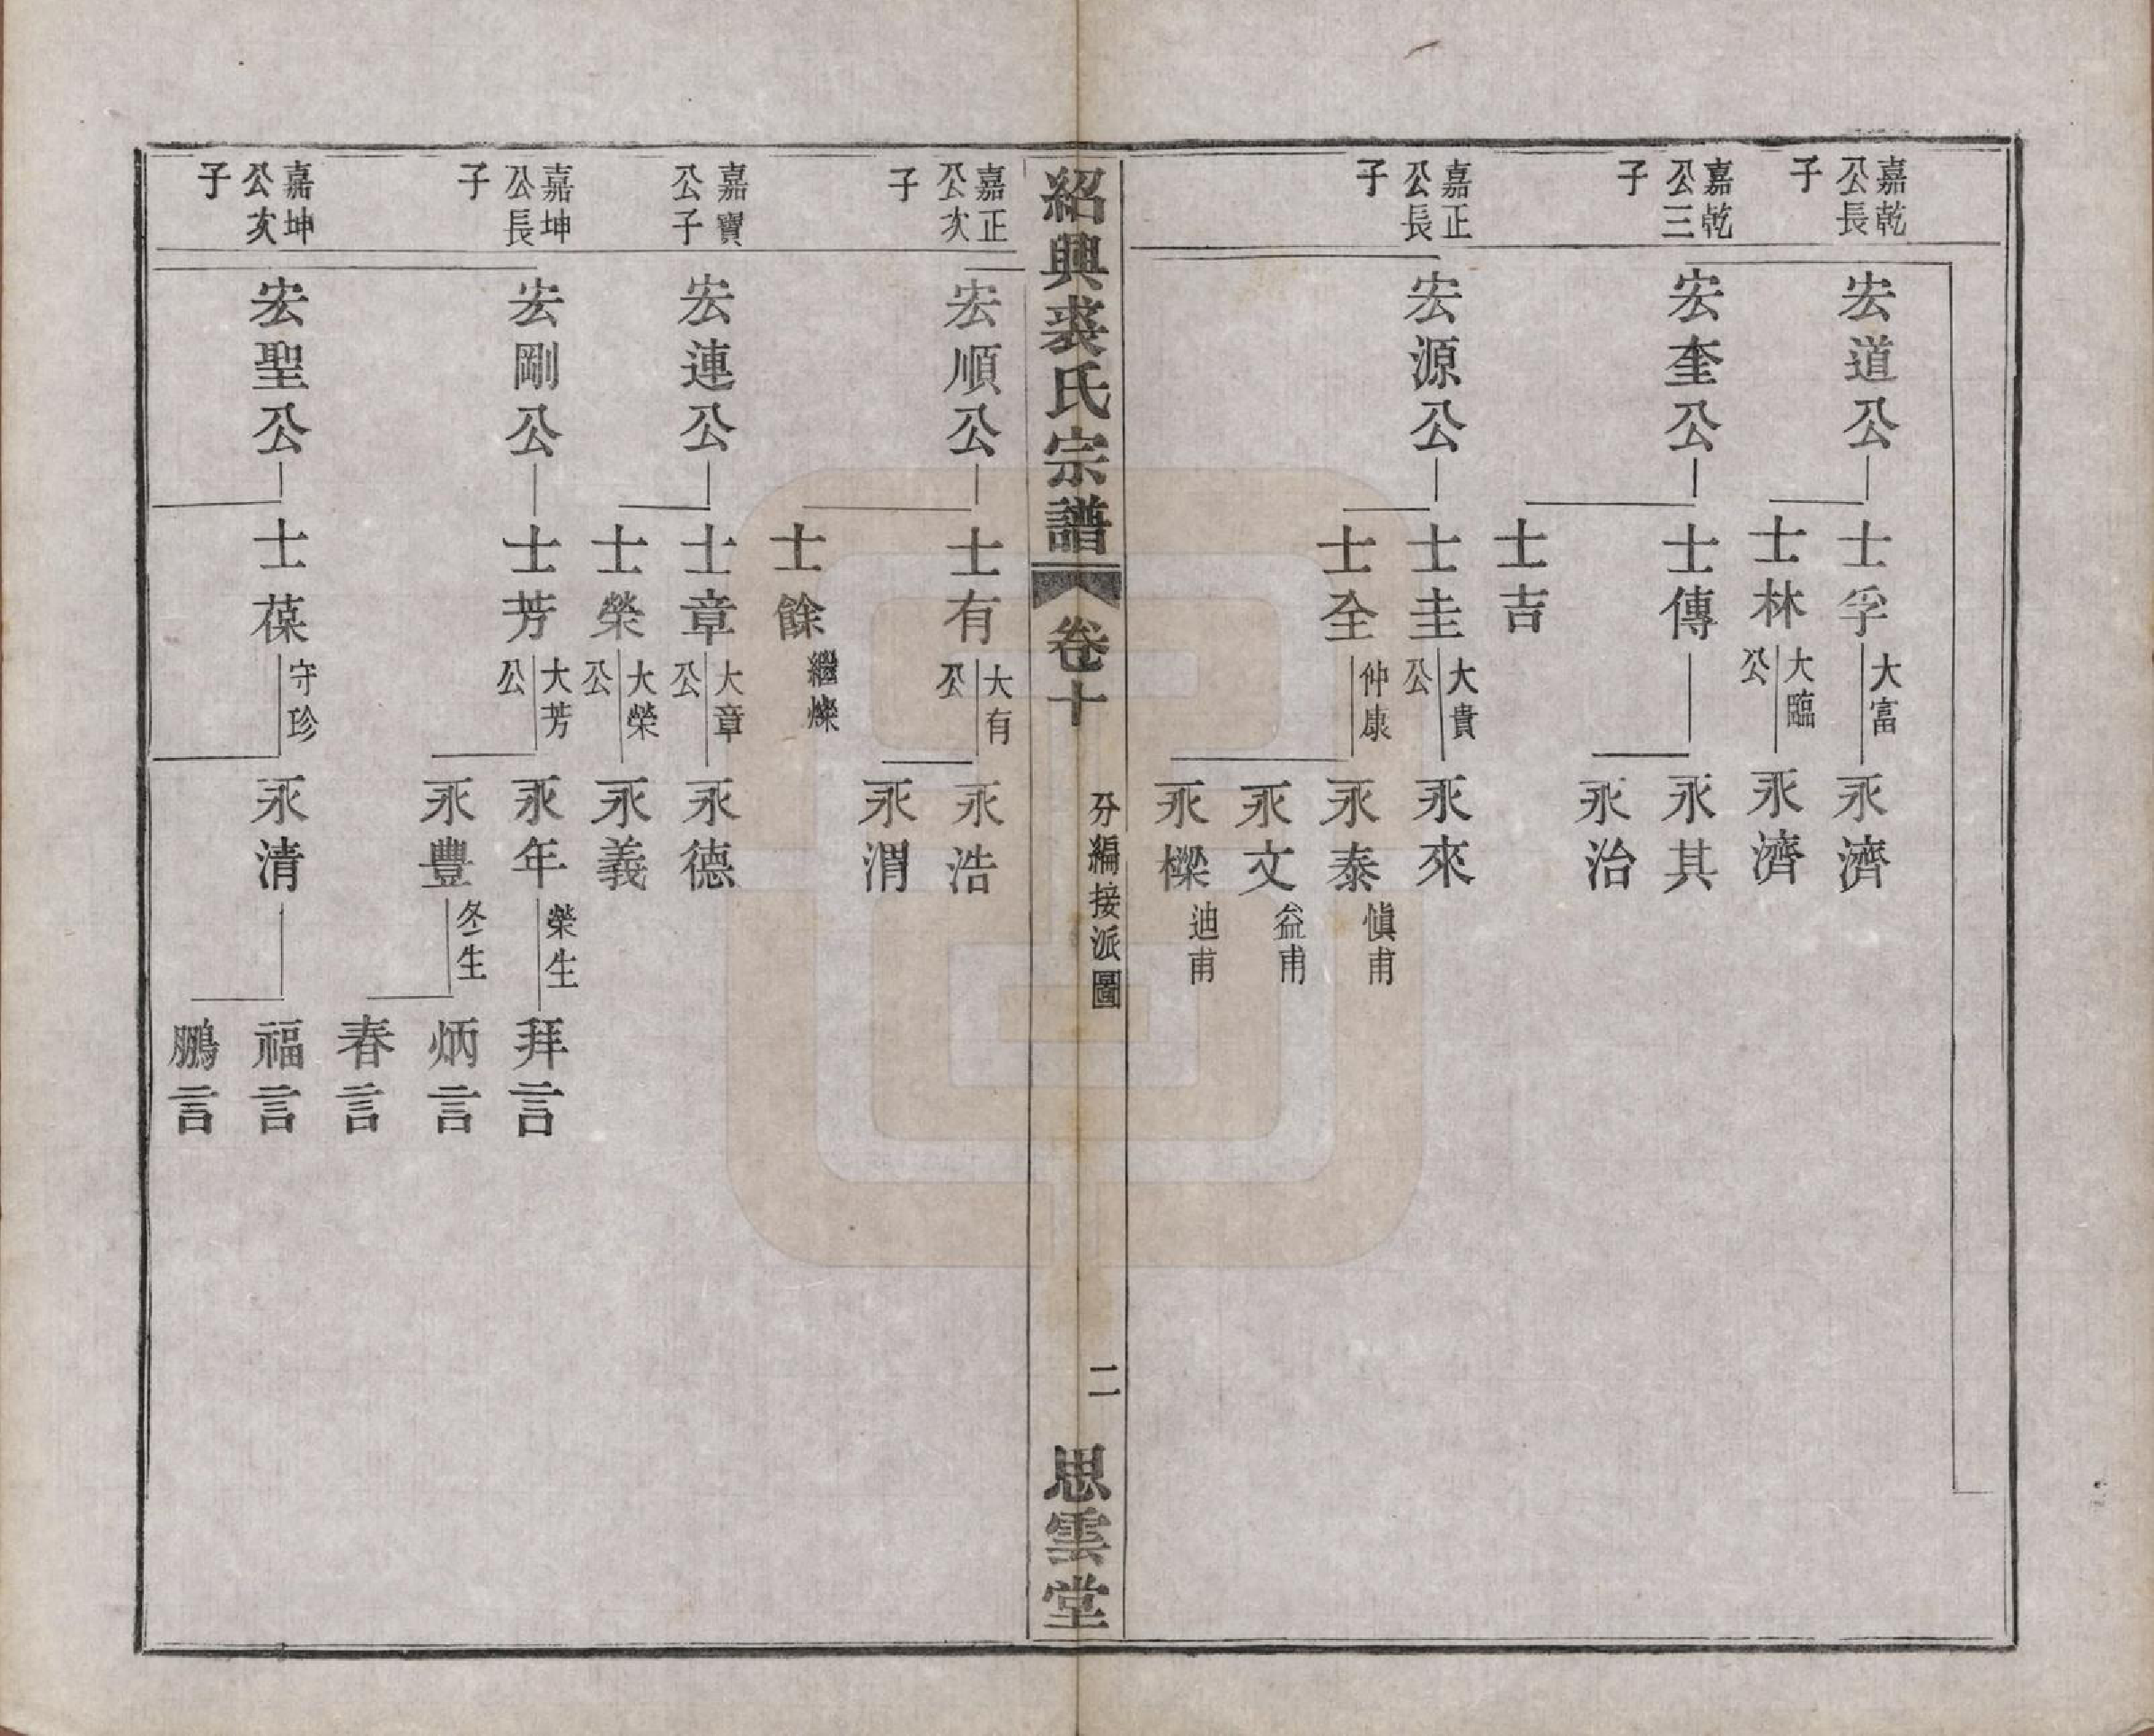 嘉乾公長子
宏道公
士孚
大富
永濟
士林
大臨公
永濟
嘉乾公三子
宏奎公
士傳
永其
永治
士吉
嘉正公長子
宏源公
士圭
大貴公
永來
士全
仲康
永泰
愼甫
永文
益甫
永樑
迪甫
紹興裘氏宗譜
卷十
分編接派圖
二
思雲堂
嘉正公次子
宏順公
士有
大有公
永浩
永渭
士餘
繼燦
嘉寶公子
宏連公
士章
大章公
永德
士榮
大榮公
永義
嘉坤公長子
宏剛公
士芳
大芳公
永年
榮生
拜言
永豐
冬生
炳言
春言
嘉坤公次子
宏聖公
士葆
守珍
永清
福言
鵬言